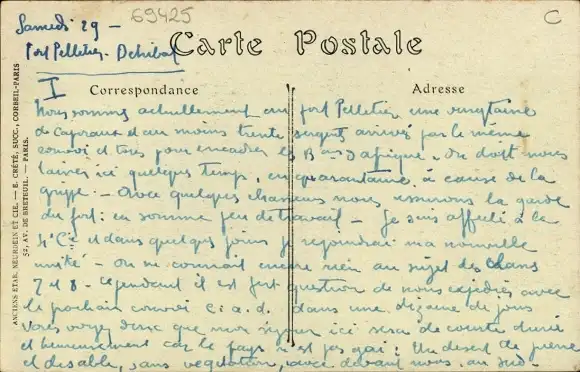 69425
C
Samedi 29 –
Fort Pelletier. Dehibat
Carte Postale
I
Correspondance
Adresse
Nous sommes actuellement au fort Pelletier une vingtaine
de caporaux et au moins trente sergents arrivés par le même
convoi et tous pour encadrer les B– d'afrique. On doit nous
laisser ici quelques temps, en quarantaine, à cause de la
grippe. – Avec quelques chasseurs nous assurons la garde
du fort : en somme peu de travail – Je suis affecté à la
4e Cie et dans quelques jours je rejoindrai ma nouvelle
unité – On ne connait encore rien au sujet des
7 et 8 – cependant il est fort question de nous expédier avec
le prochain convoi c. a. d. dans une dizaine de jours
Vous voyez donc que mon séjour ici sera de courte durée
et heureusement car le pays n'est pas gai : Un desert de pierre
et de sable, sans vegetation, avec devant nous, au sud
ANCIENS ETAB. NEURDEIN ET CIE. — E. CRÉTÉ, SUCC., CORBEIL-PARIS
52, AV. DE BRETEUIL, PARIS.